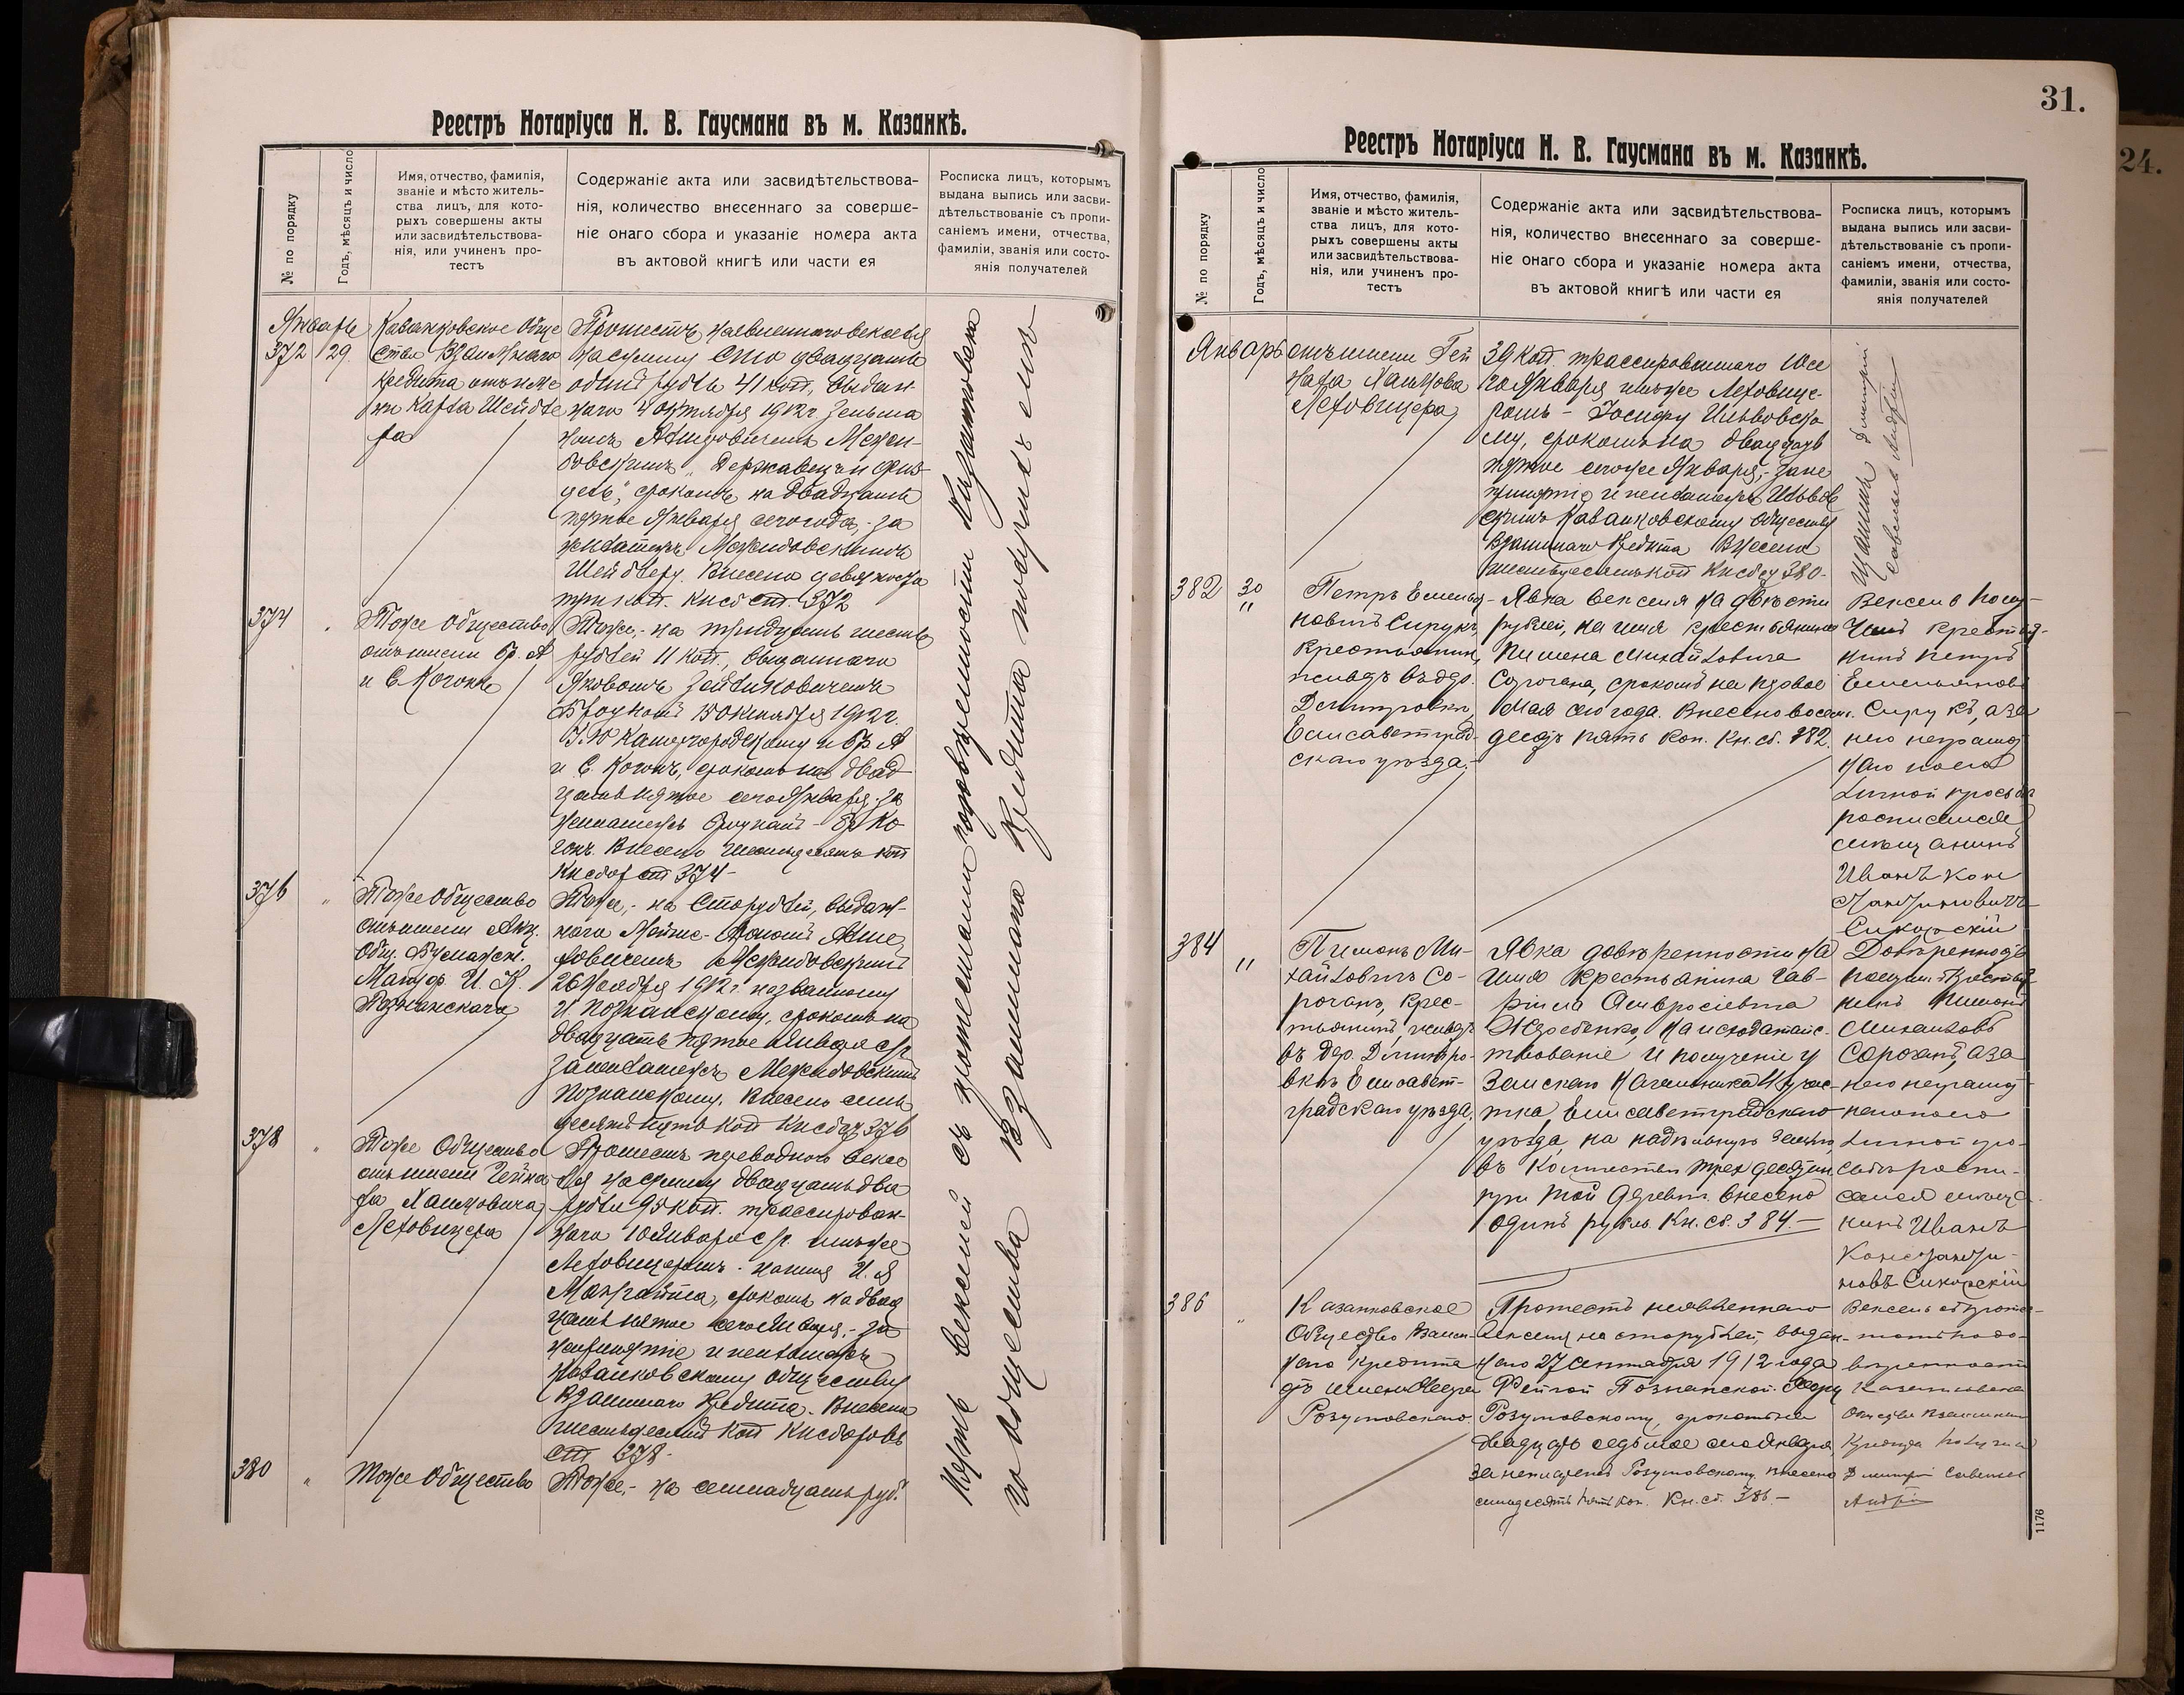 Реестръ Нотаріуса Н. В. Гаусмана въ м. Казанкѣ.
№ по порядку
Годъ, мѣсяцъ и число
Имя, отчество, фамилія,
званіе и мѣсто житель-
ства лицъ, для кото-
рыхъ совершены акты
или засвидѣтельствова-
нія, или учиненъ про-
тестъ
Содержаніе акта или засвидѣтельствова-
нія, количество внесеннаго за соверше-
ніе онаго сбора и указаніе номера акта
въ актовой книгѣ или части ея
Росписка лицъ, которымъ
выдана выпись или засви-
дѣтельствованіе съ пропи-
саніемъ имени, отчества,
фамиліи, званія или состо-
янія получателей
Январь
372 29.
Казанковское Обще
ство Взаимнаго
Кредита отъ име
ни Карла Шейбле
ра
Протестъ неявленнаго векселя
на сумму Сто двадцать
одинъ рубль 41 коп., выдан
наго 4 октября 1912 г. Зельма
номъ
срокомъ на двадцать
пятое Января сего года, за
неплатежъ
Шейблеру. Внесено девяносто
три коп. Кн сб ст. 372
374
Тоже Общество
отъ имени Бр. А
и С. Когонъ
Тоже, на тридцать шесть
рублей 11 коп., выданнаго
Яковомъ Зейликовичемъ
Броцкимъ 15 Октября 1912 г.
и Бр А
и С. Когонъ, срокомъ на двад
цать пятое сего Января, за
неплатежъ Броцкимъ - Бр Ко
гонъ. Внесено шестьдесятъ коп
Кн сбор ст 374 -
376
Тоже Общество
отъ имени Акц.
Общ. Бумажн.
Мануф. И. К.
Познанскаго
Тоже, на Сто рублей, выдан-
наго
26 Ноября 1912 г. названному
И. Познанскому, срокомъ на
двадцать пятое Января с/г.
за неплатежъ
Познанскому. Внесено семь
десятъ пять коп Кн сбор 376
378
Тоже Общество
отъ имени Гейна
ра Хаимовича
Леровицера
Протестъ переводного вексе
ля на сумму двадцать два
рубля 95 коп. трассирован-
наго 10 Января с/г. имъ же
Леровицеромъ - на имя И. Я
срокомъ на двад
цать пятое сего Января, - за
непринятіе и неплатежъ
Казанковскому Обществу
Взаимнаго Кредита. Внесено
шестьдесятъ коп Кн сборовъ
ст 378 -
380
Тоже Общество
Тоже, - на семнадцать руб.
векселей съ протестами по довѣренности Казанковска
го Общества Взаимнаго Кредита получилъ
31.
24.
Реестръ Нотаріуса Н. В. Гаусмана въ м. Казанкѣ.
№ по порядку
Годъ, мѣсяцъ и число
Имя, отчество, фамилія,
званіе и мѣсто житель-
ства лицъ, для кото-
рыхъ совершены акты
или засвидѣтельствова-
нія, или учиненъ про-
тестъ
Содержаніе акта или засвидѣтельствова-
нія, количество внесеннаго за соверше-
ніе онаго сбора и указаніе номера акта
въ актовой книгѣ или части ея
Росписка лицъ, которымъ
выдана выпись или засви-
дѣтельствованіе съ пропи-
саніемъ имени, отчества,
фамиліи, званія или состо-
янія получателей
Январь
отъ имени Гей
нара Хаимова
Леровицера
39 коп трассированнаго 10 се
го Января имъ же Леровице-
ромъ - Іосифу Ильвовско
му, срокомъ на двадцать
пятое сего же Января, - за не
принятіе и неплатежъ Ильвов
скимъ Казанковскому Обществу
Взаимнаго Кредита Внесено
шестьдесятъ коп Кн сбор 380 -
Дмитрій
Савельевъ
382 30
"
Петръ Емелья-
новичъ Сирукъ,
крестьянин,
жив. въ дер.
Дмитровкѣ,
Елисаветград-
скаго уѣзда.
Явка векселя на двѣсти
рублей, на имя крестьянина
Пимена Михайловича
Сорочана, срокомъ на первое
Мая сего года. Внесено восемь
десятъ пять коп. Кн. сб. 382.
Вексель полу-
чилъ крестья-
нинъ Петръ
Емельяновъ
Сирукъ, а за
него неграмот
наго по его
личной просьбѣ
росписался
мѣщанинъ
Иванъ Кон
стантиновичъ
Сикорскій
384 "
Пименъ Ми-
хайловичъ Со-
рочанъ, крес-
тьянинъ, жив.
въ дер. Дмитро-
вкѣ Елисавет-
градскаго уѣзда.
Явка довѣренности на
имя крестьянина Гав-
ріила Амвросіевича
на исходатайс-
твованіе и полученіе у
Земскаго Начальника учас-
тка, Елисаветградскаго
уѣзда, на надѣльную землю,
въ количествѣ трех десятин
при той деревнѣ. Внесено
одинъ рубль. Кн. сб. 384 —
Довѣренность
получил крестья
нинъ Пименъ
Михайловъ
Сорочанъ, а за
него неграмот
наго по его
личной про-
сьбѣ роспи-
сался мѣща
нинъ Иванъ
Константи-
новъ Сикорскій
386 "
Казанковское
Общество Взаим-
наго Кредита
отъ имени
Розумовскаго.
Протестъ неявленнаго
векселя на сто рублей, выдан-
наго 27 Сентября 1912 года
Познанской
Розумовскому, срокомъ на
двадцать седьмое сего Января
за неплатежъ Розумовскому. Внесено
семьдесятъ пять коп. Кн. сб. 386. —
Вексель съ проте-
стомъ по до-
вѣренности
Казанковскаго
Общества Взаимнаго
Кредита получилъ
Дмитрій Савельевъ
1176